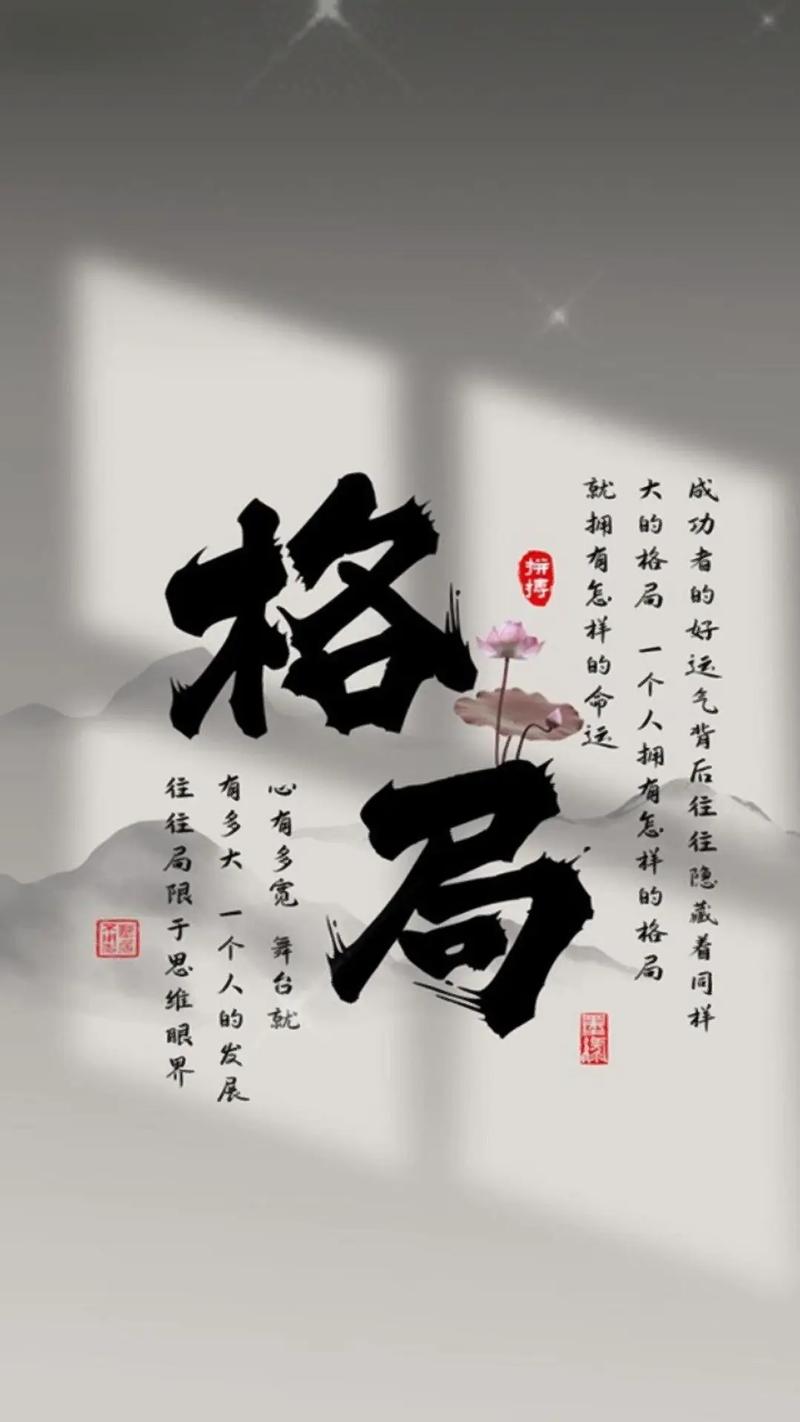 格局
拼搏
成功者的好运气背后往往隐藏着同样
大的格局 一个人拥有怎样的格局
就拥有怎样的命运
心有多宽 舞台就
有多大 一个人的发展
往往局限于思维眼界